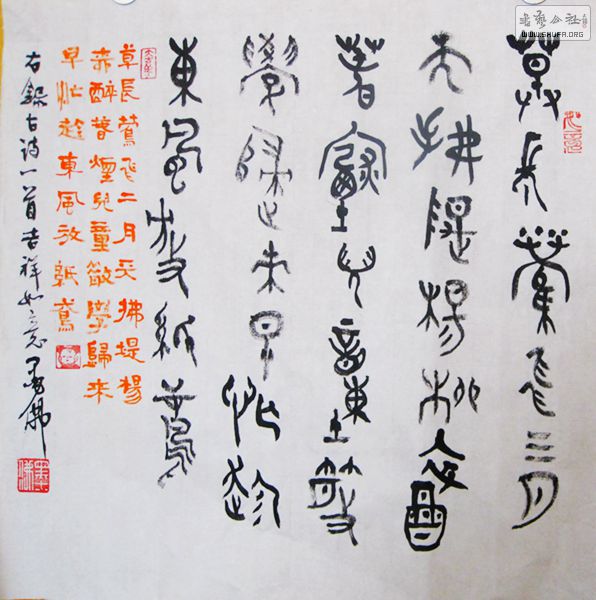 書藝公社
WWW.SHUFA.ORG
草長鶯飛二月
天拂堤楊柳醉
春煙兒童散
學歸來早忙趁
東風放紙鳶
草長鶯飛二月天拂堤楊
醉春煙兒童散學歸來
早忙趁東風放紙鳶
右錄古詩一首吉祥如意 墨佛